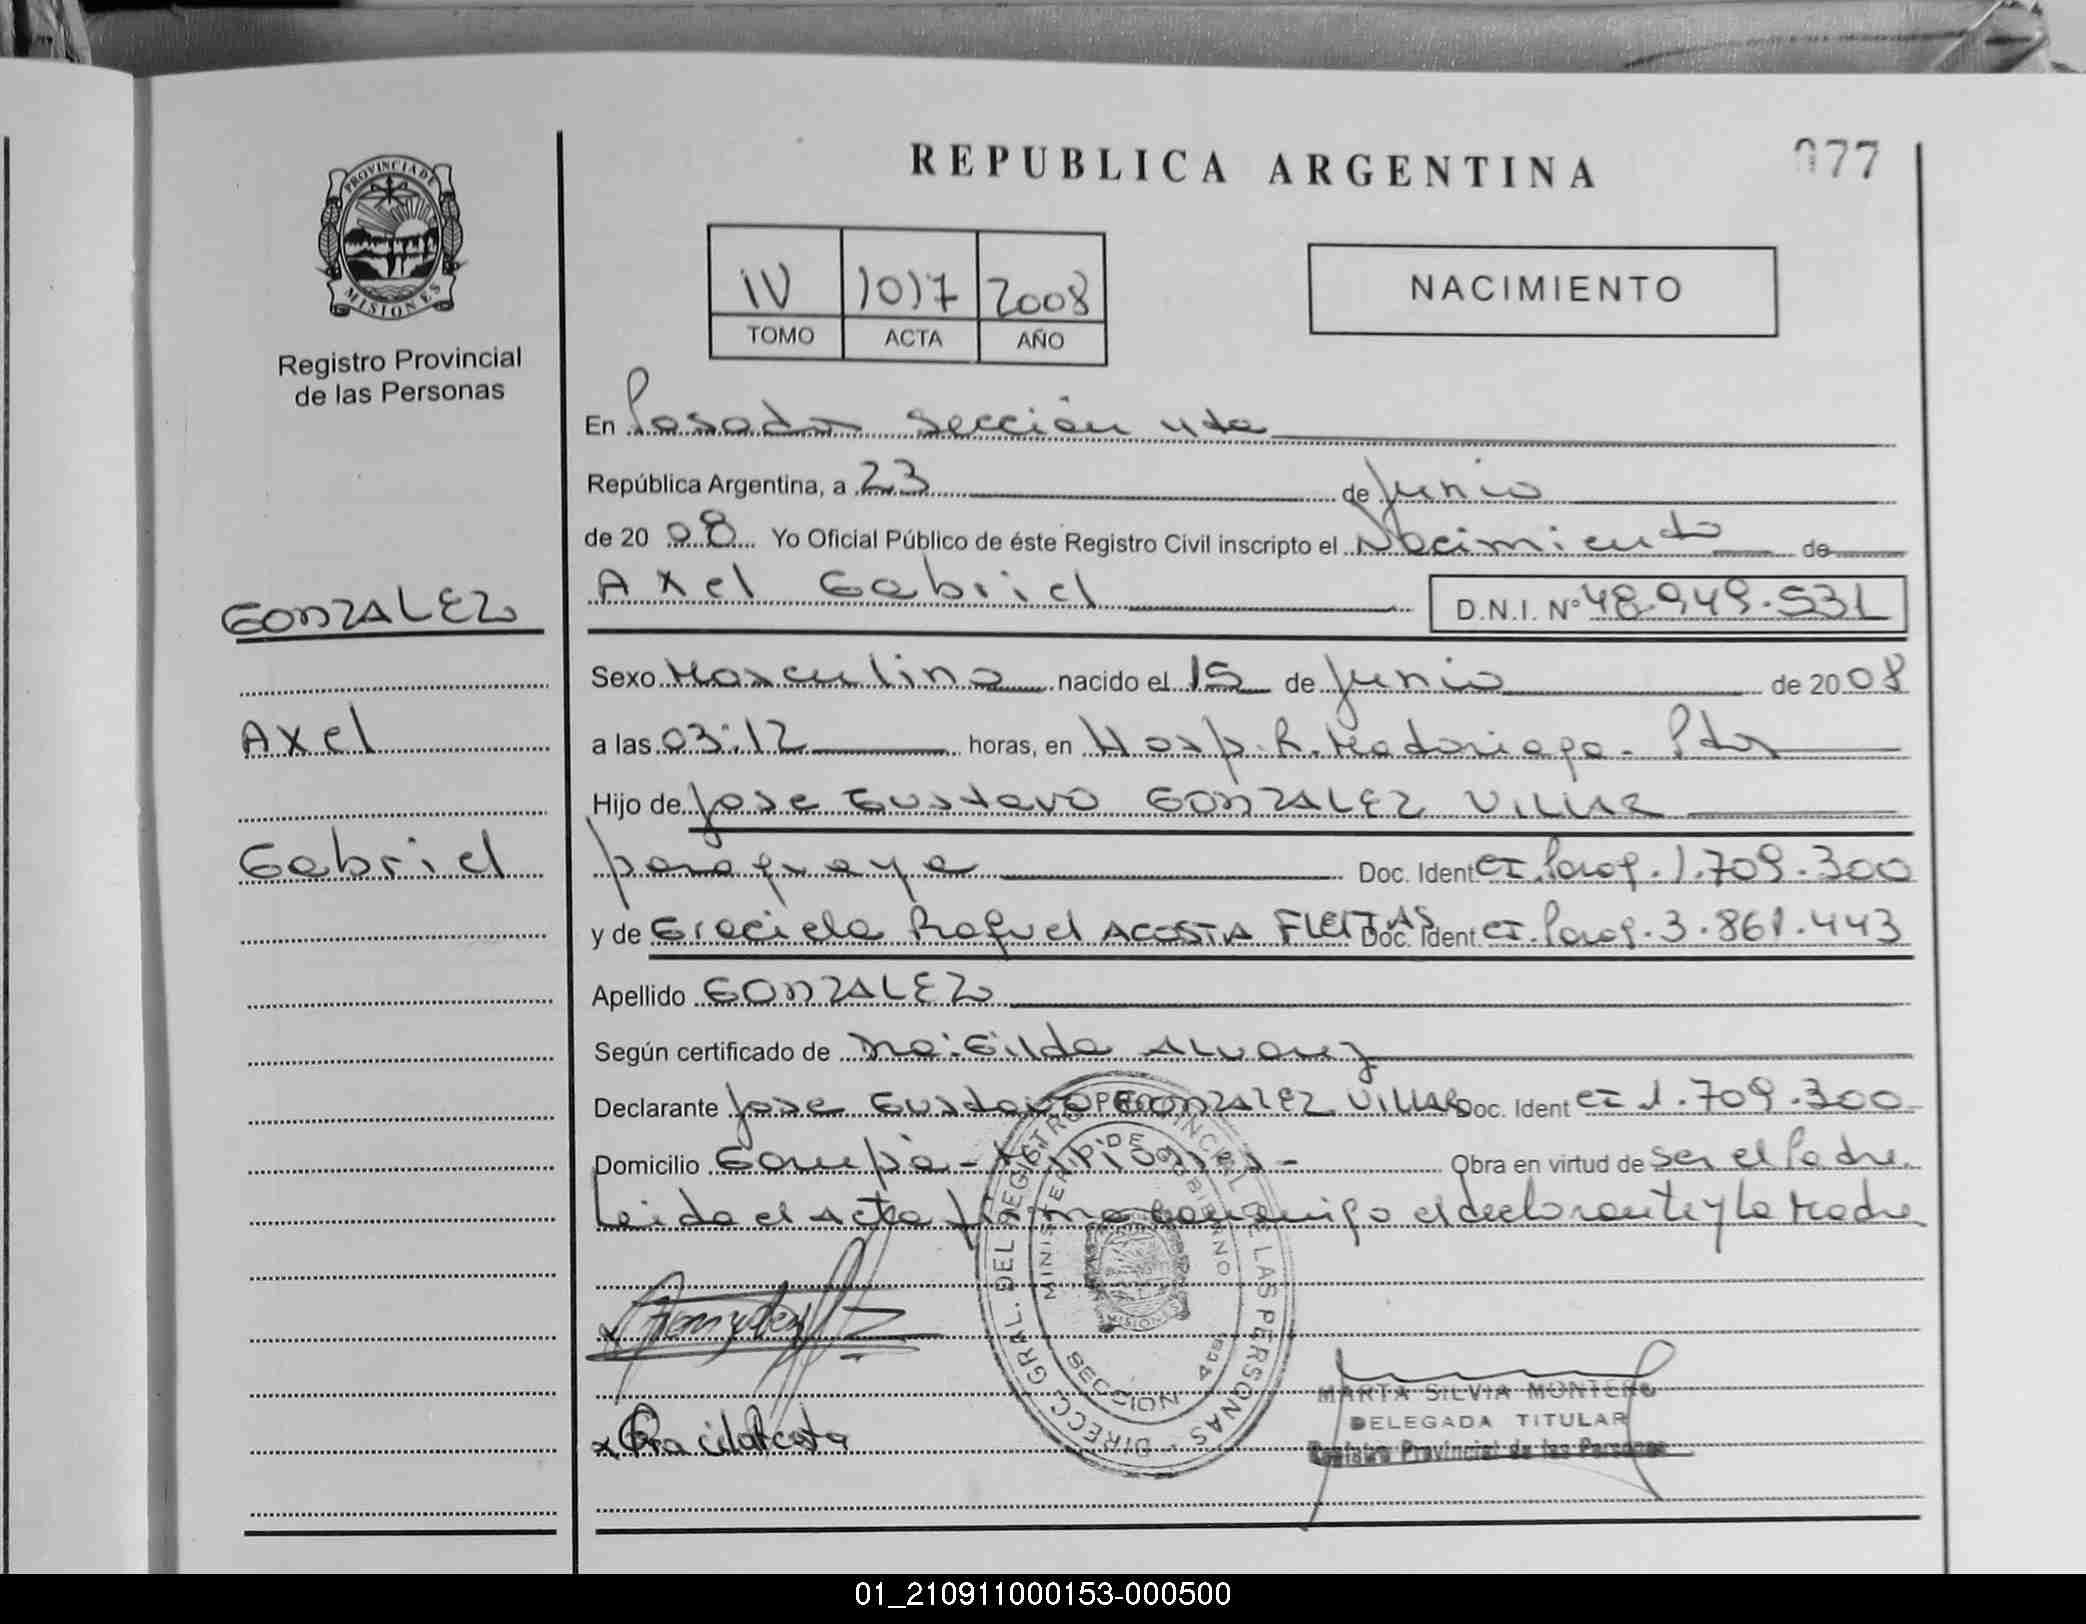 REPUBLICA ARGENTINA
077
PROVINCIA DE MISIONES
Registro Provincial
de las Personas
IV 1017 2008
TOMO ACTA AÑO
NACIMIENTO
En Posadas sección 4ta
República Argentina, a 23 de Junio
de 2008 Yo Oficial Público de éste Registro Civil inscripto el Nacimiento de
GONZALEZ
Axel Gabriel D.N.I. Nº 48.949.531
Sexo Masculino nacido el 15 de Junio de 2008
Axel
a las 03:12 horas, en Hosp. R. Madariaga - Pdas
Hijo de Jose Gustavo GONZALEZ VILLAR
Gabriel
paraguaya Doc. Ident CI. Parag. 1.709.300
y de Graciela Raquel ACOSTA FLEITAS Doc. Ident. CI. Parag. 3.861.443
Apellido GONZALEZ
Según certificado de Gilda Alvarez
Declarante Jose Gustavo GONZALEZ VILLAR Doc. Ident CI 1.709.300
Domicilio Garupá - Misiones - Obra en virtud de ser el Padre.
Leida el Acta firma conmigo el declarante y la Madre
DIRECC. GRAL. DEL REGISTRO PROVINCIAL DE LAS PERSONAS
MINISTERIO DE GOBIERNO
MISIONES
SECCION 4ta
x
x Graciela Acosta
MARTA SILVIA MONTERO
DELEGADA TITULAR
Registro Provincial de las Personas
01_210911000153-000500